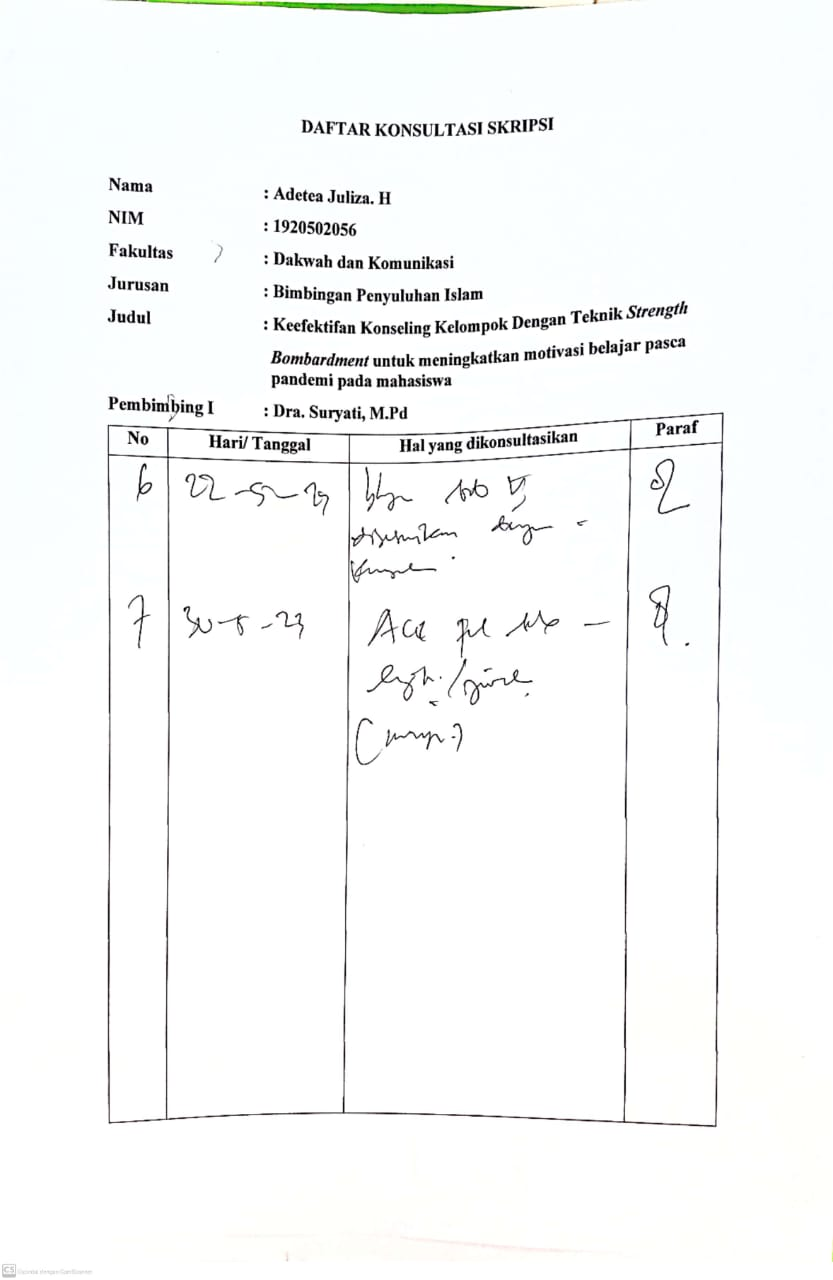 DAFTAR KONSULTASI SKRIPSI
Nama : Adetea Juliza. H
NIM : 1920502056
Fakultas : Dakwah dan Komunikasi
Jurusan : Bimbingan Penyuluhan Islam
Judul : Keefektifan Konseling Kelompok Dengan Teknik Strength
Bombardment untuk meningkatkan motivasi belajar pasca
pandemi pada mahasiswa
Pembimbing I : Dra. Suryati, M.Pd
No Hari/ Tanggal Hal yang dikonsultasikan Paraf
6 22-5-23
disesuaikan dengan
7 30-5-23 Acc
CS Dipindai dengan CamScanner